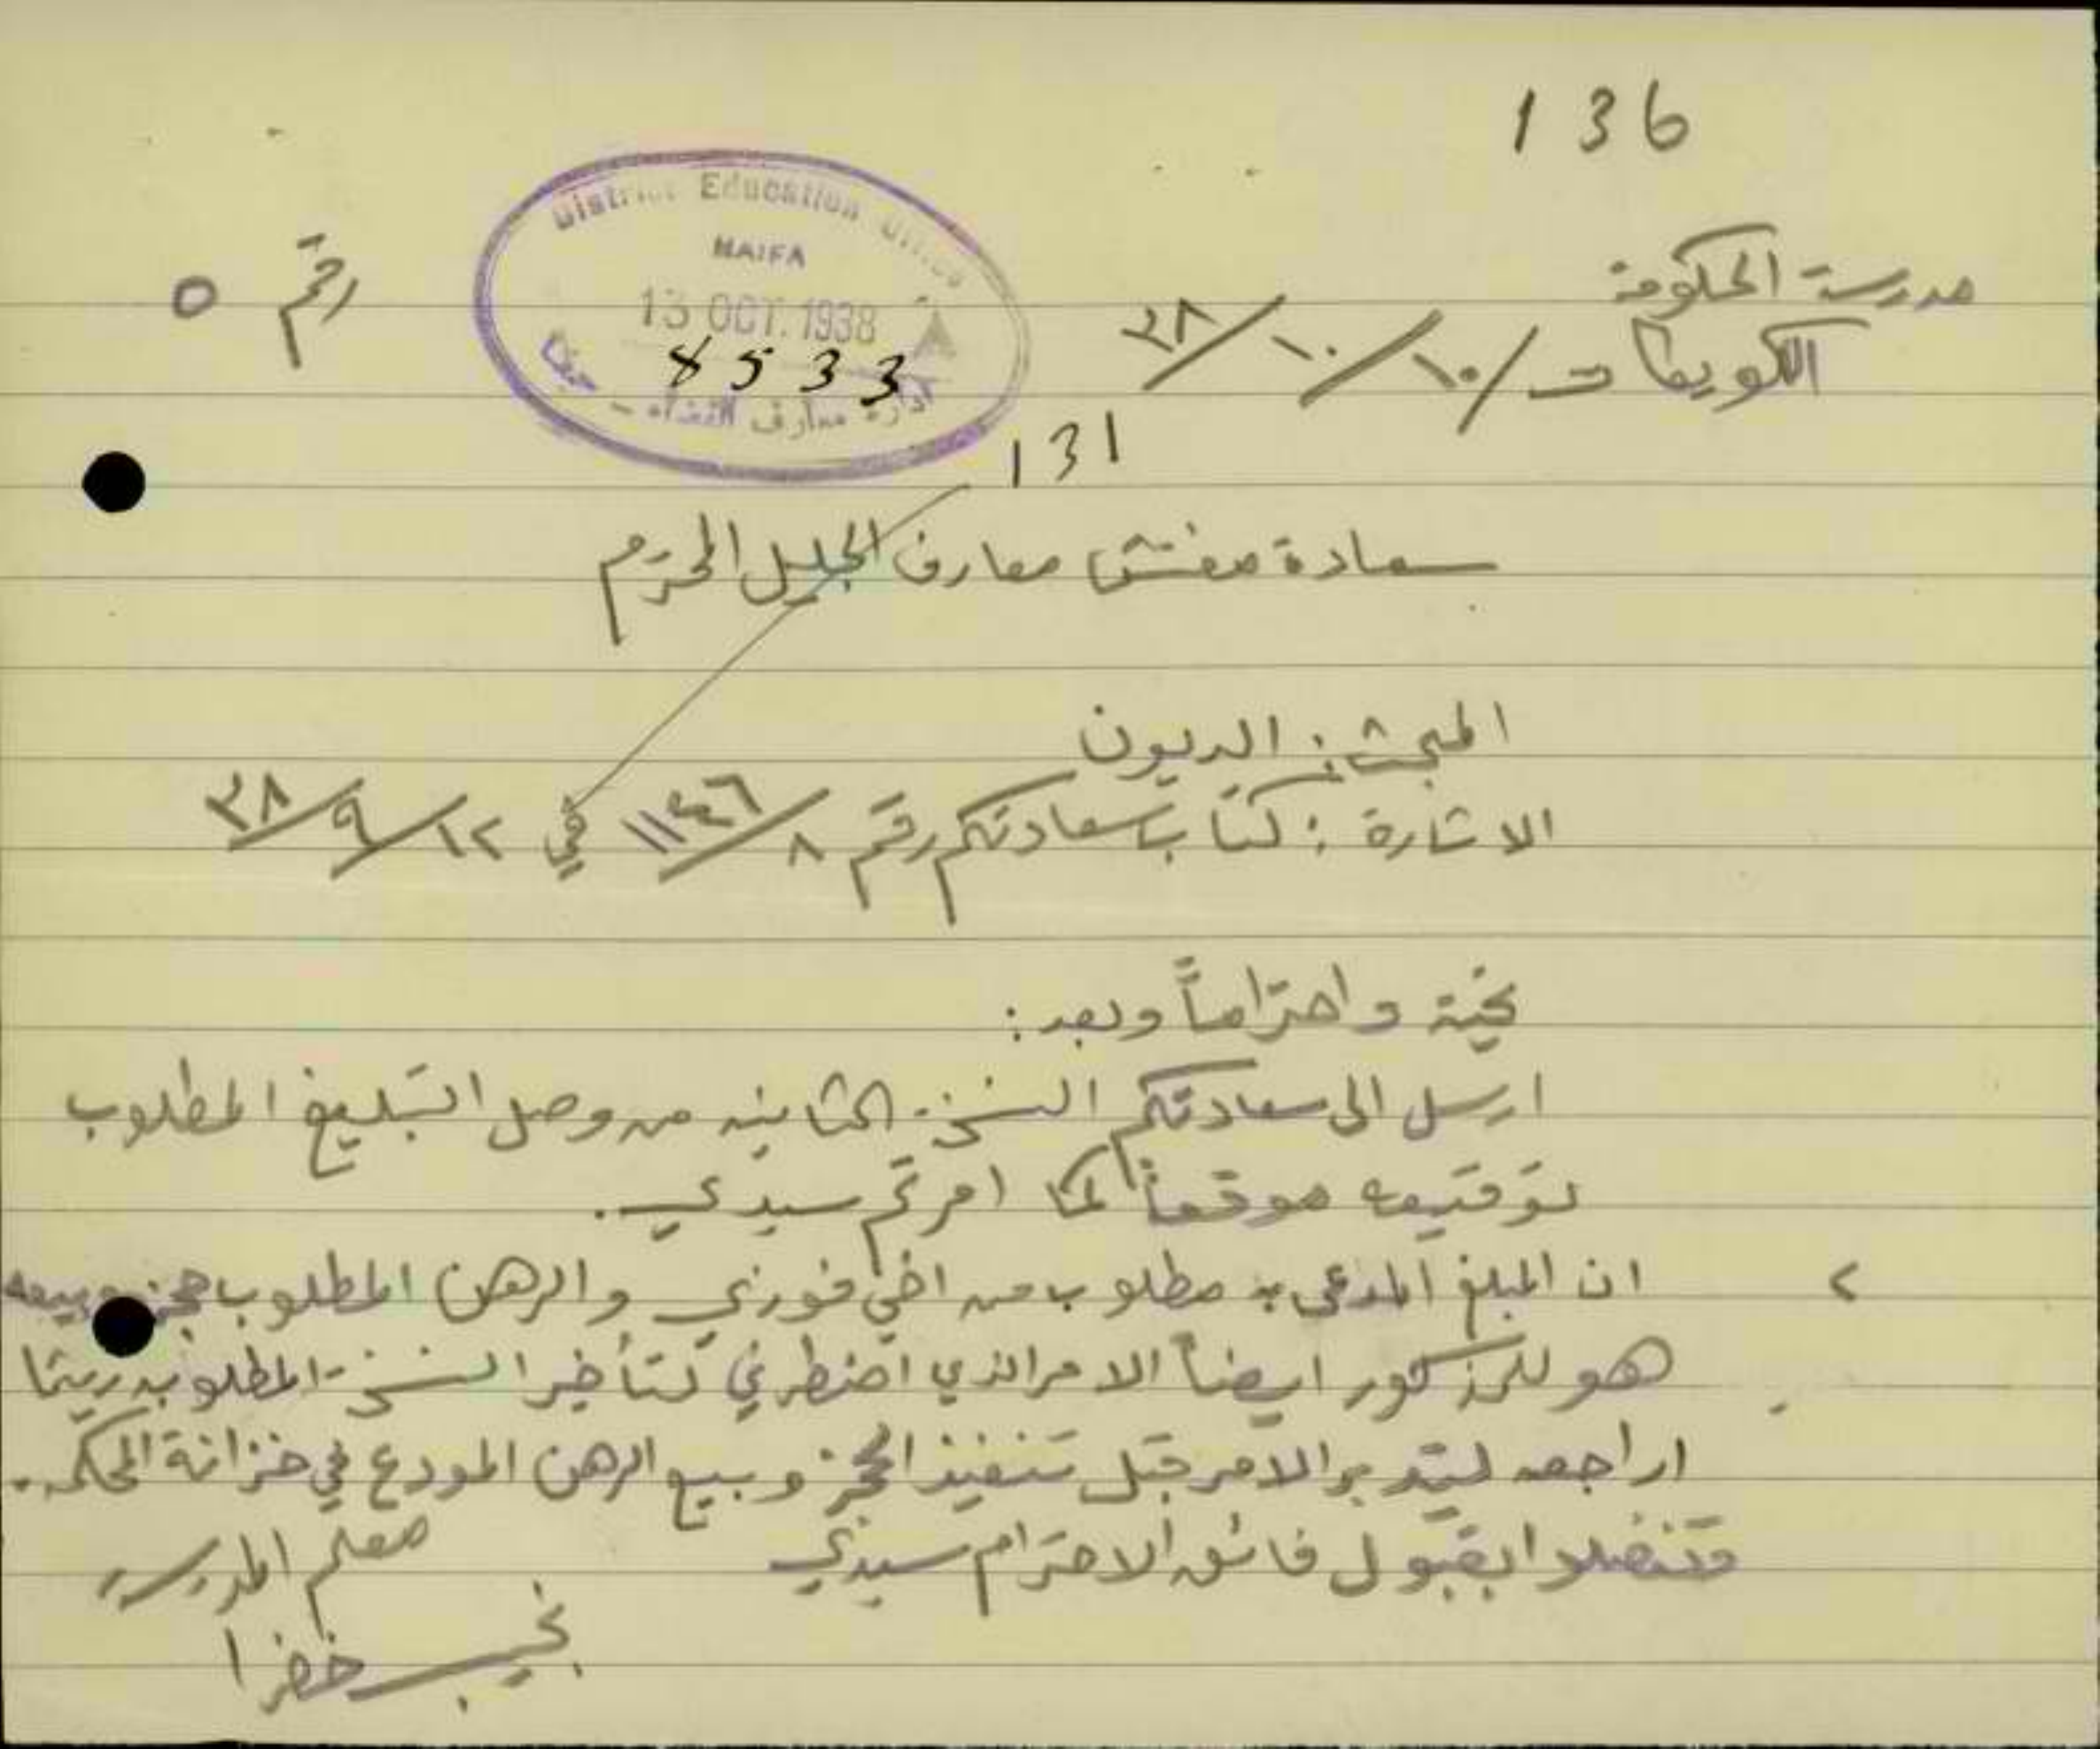 136
District Education Office
HAIFA
13 OCT. 1938
8533
ادارة معارف القضاء - حيفا
رقم ٥
مدرسة الحكومة
الكويكات ١٠/١٠/٣٨
131
سعادة مفتش معارف الجليل المحترم
المبحث: الديون
الاشارة: كتاب سعادتكم رقم ٨/١١٤٦ في ١٢/٩/٣٨
تحية واحتراماً وبعد:
ارسل الى سعادتكم النسخة الثانيه من وصل التبليغ المطلوب
توقيعه موقعاً كما امرتم سيدي.
٢ ان المبلغ المدعى به مطلوب من اخي فوزي والرهن المطلوب حجزه وبيعه
هو للمذكور ايضاً الامر الذي اضطرني لتأخير النسخة المطلوبه ريثما
اراجعه ليتدبر الامر قبل تنفيذ الحجز وبيع الرهن المودع في خزانة المحكمه.
وتفضلوا بقبول فائق الاحترام سيدي
معلم المدرسه
نجيب خضرا